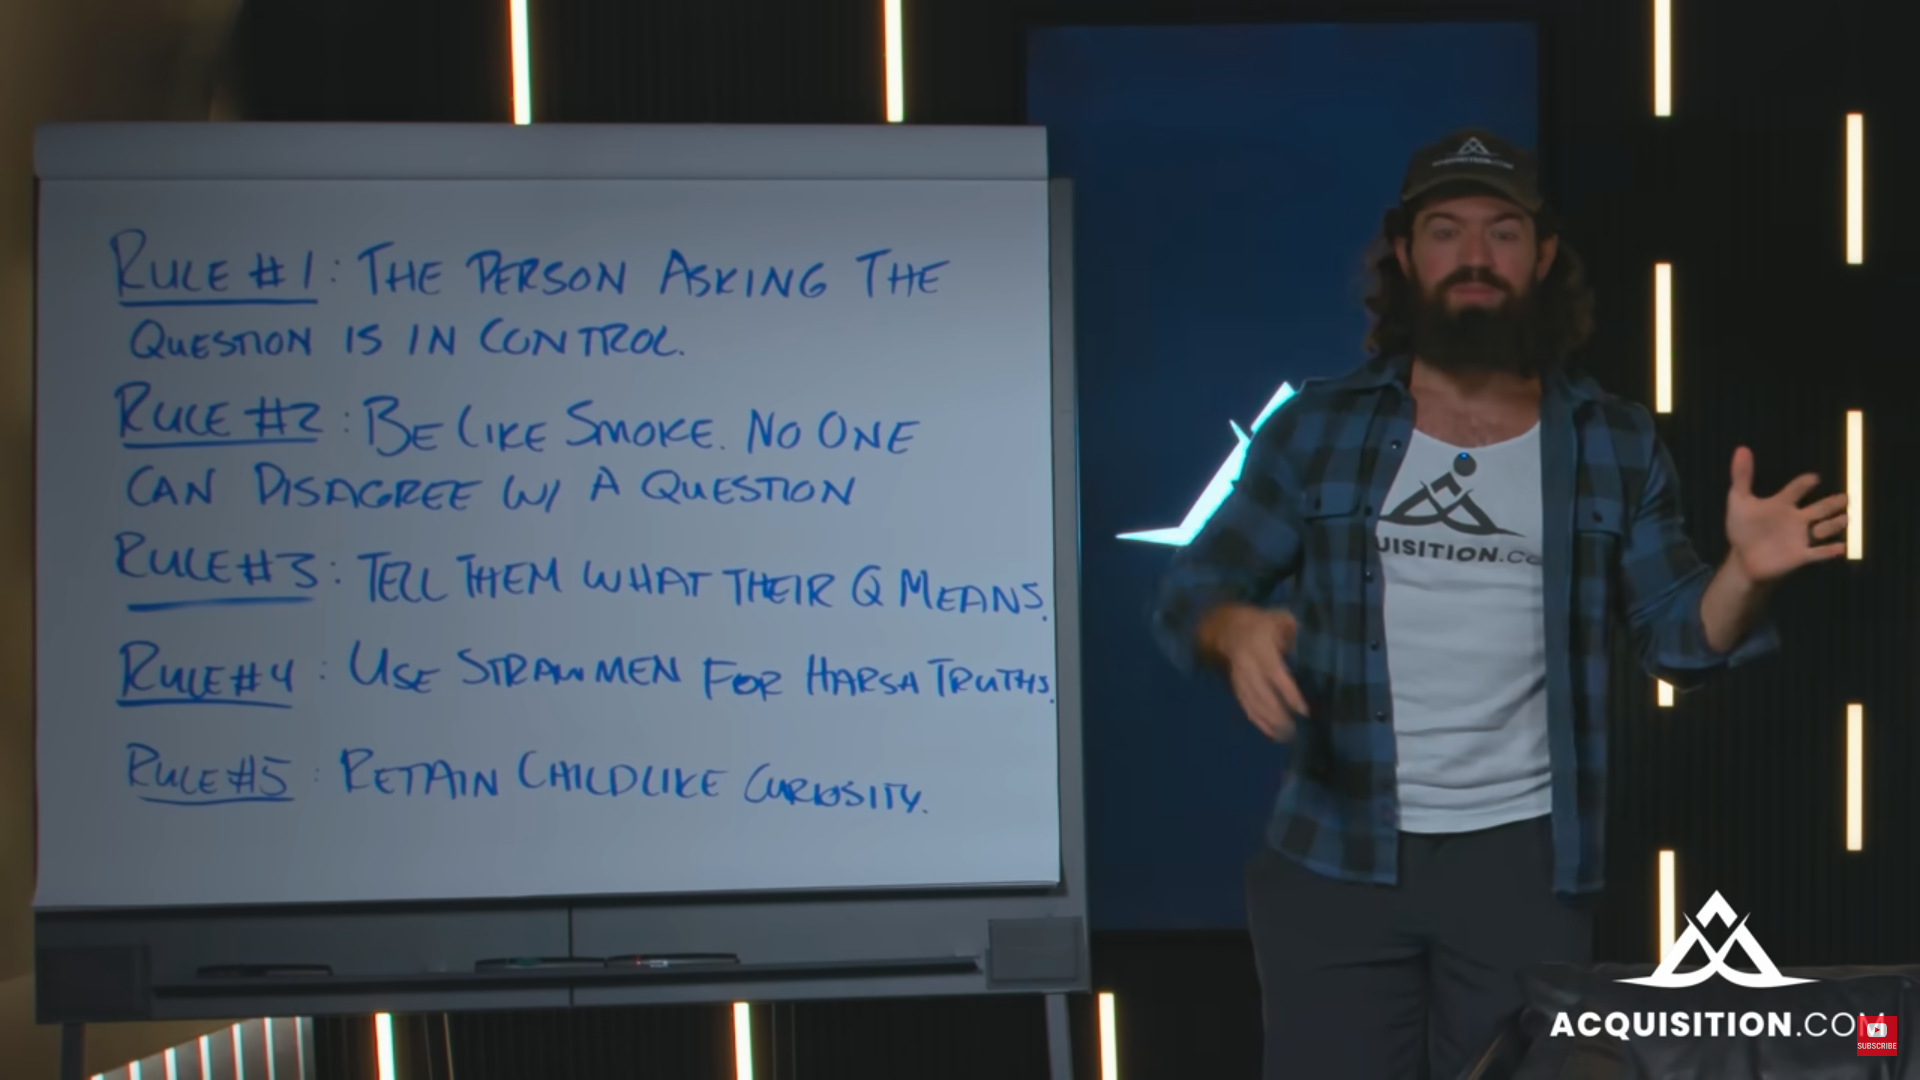 RULE #1: THE PERSON ASKING THE
QUESTION IS IN CONTROL.
RULE #2: BE LIKE SMOKE. NO ONE
CAN DISAGREE W/ A QUESTION
RULE #3: TELL THEM WHAT THEIR Q MEANS.
RULE #4: USE STRAWMEN FOR HARSH TRUTHS.
RULE #5: RETAIN CHILDLIKE CURIOSITY.
UISITION.CO
ACQUISITION.COM
SUBSCRIBE